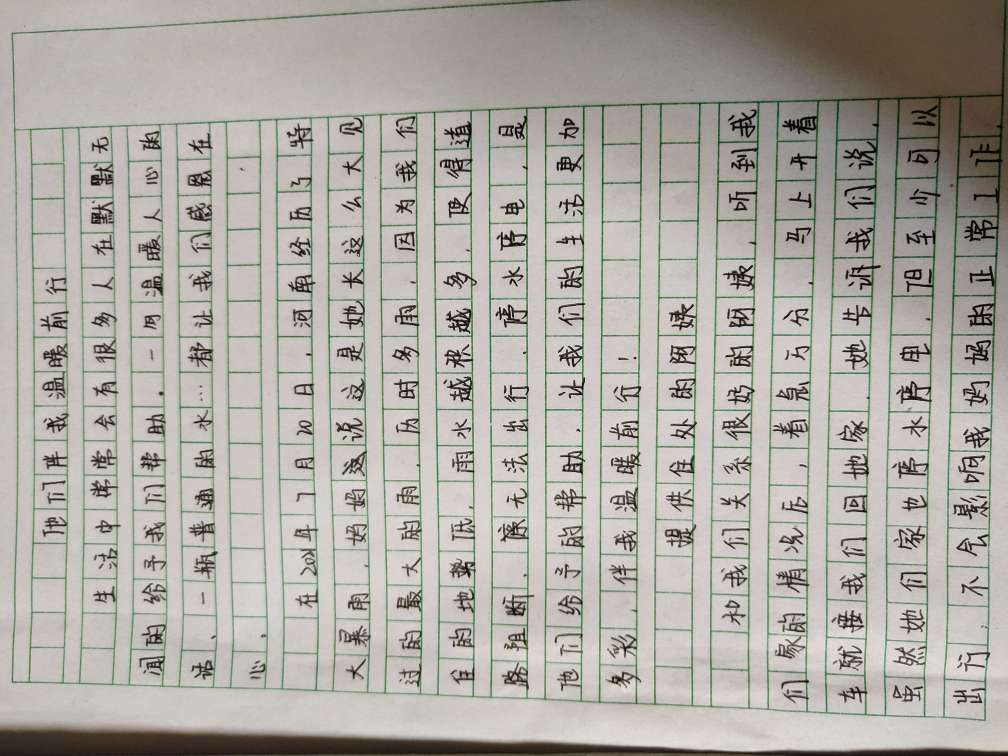 他们伴我温暖前行
生活中常常会有很多人在默默无
闻的给予我们帮助。一句温暖人心的
话、一瓶普通的水…都让我们感恩在
心。
在2021年7月20日，河南经历了特
大暴雨，妈妈这说这是她长这么大见
过的最大的雨，历时多雨，因为我们
住的地势低，雨水越积越多，使得道
路阻断，无法出行，停水停电，是
他们给予的帮助，让我们的生活更加
多彩，伴我温暖前行！
提供住处的阿姨
和我们关系很好的阿姨，听到我
们家的情况后，着急万分，马上开着
车就接我们回她家，她告诉我们说，
虽然她们家也停水停电，但至少可以
出行，不会影响我妈妈的正常工作